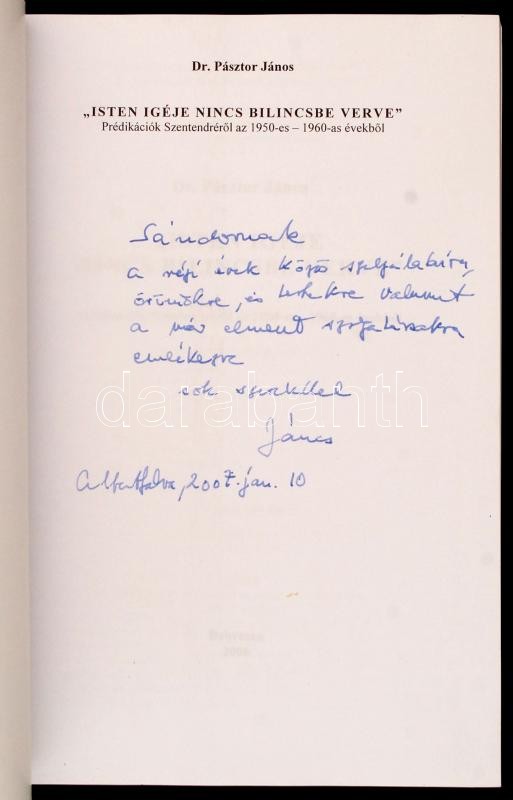 Dr. Pásztor János
„ISTEN IGÉJE NINCS BILINCSBE VERVE”
Prédikációk Szentendréről az 1950-es – 1960-as évekből
Sándornak
a régi évek közös szolgálatára,
örömökre, és terhekre valamint
a már elment szolgatársakra
emlékezve
sok szeretettel
János
Albertfalva, 2007. jan. 10
darabanth
Debrecen
2006